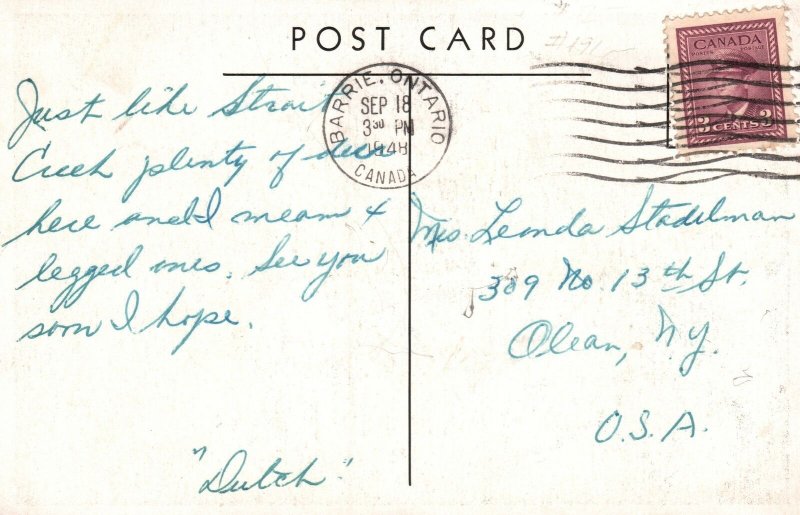 POST CARD
BARRIE, ONTARIO
SEP 18
3 30 PM
1948
CANADA
CANADA
POSTES POSTAGE
3 CENTS 3
Just like Strait
Creek plenty of deer
here and I mean 4
legged ones. See you
soon I hope.
"Dutch"
Mrs. Leonda Stadelman
309 No 13th St.
Olean, N.Y.
U.S.A.